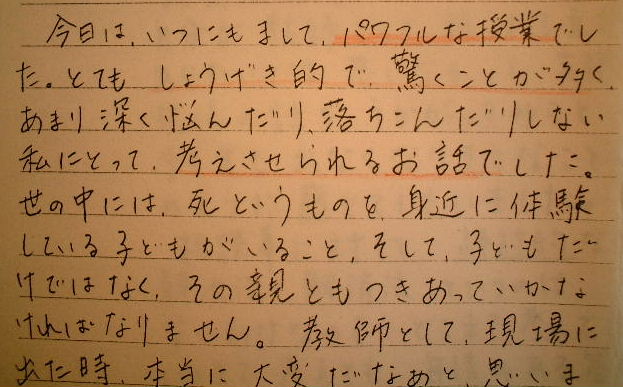 今日は、いつにもまして、パワフルな授業でし
た。とても しょうげき的で、驚くことが多く、
あまり深く悩んだり、落ちこんだりしない
私にとって、考えさせられるお話でした。
世の中には、死というものを、身近に体験
している子どもがいること、そして、子どもだ
けではなく、その親ともつきあっていかな
ければなりません。 教師として、現場に
出た時、本当に大変だなあと、思いま